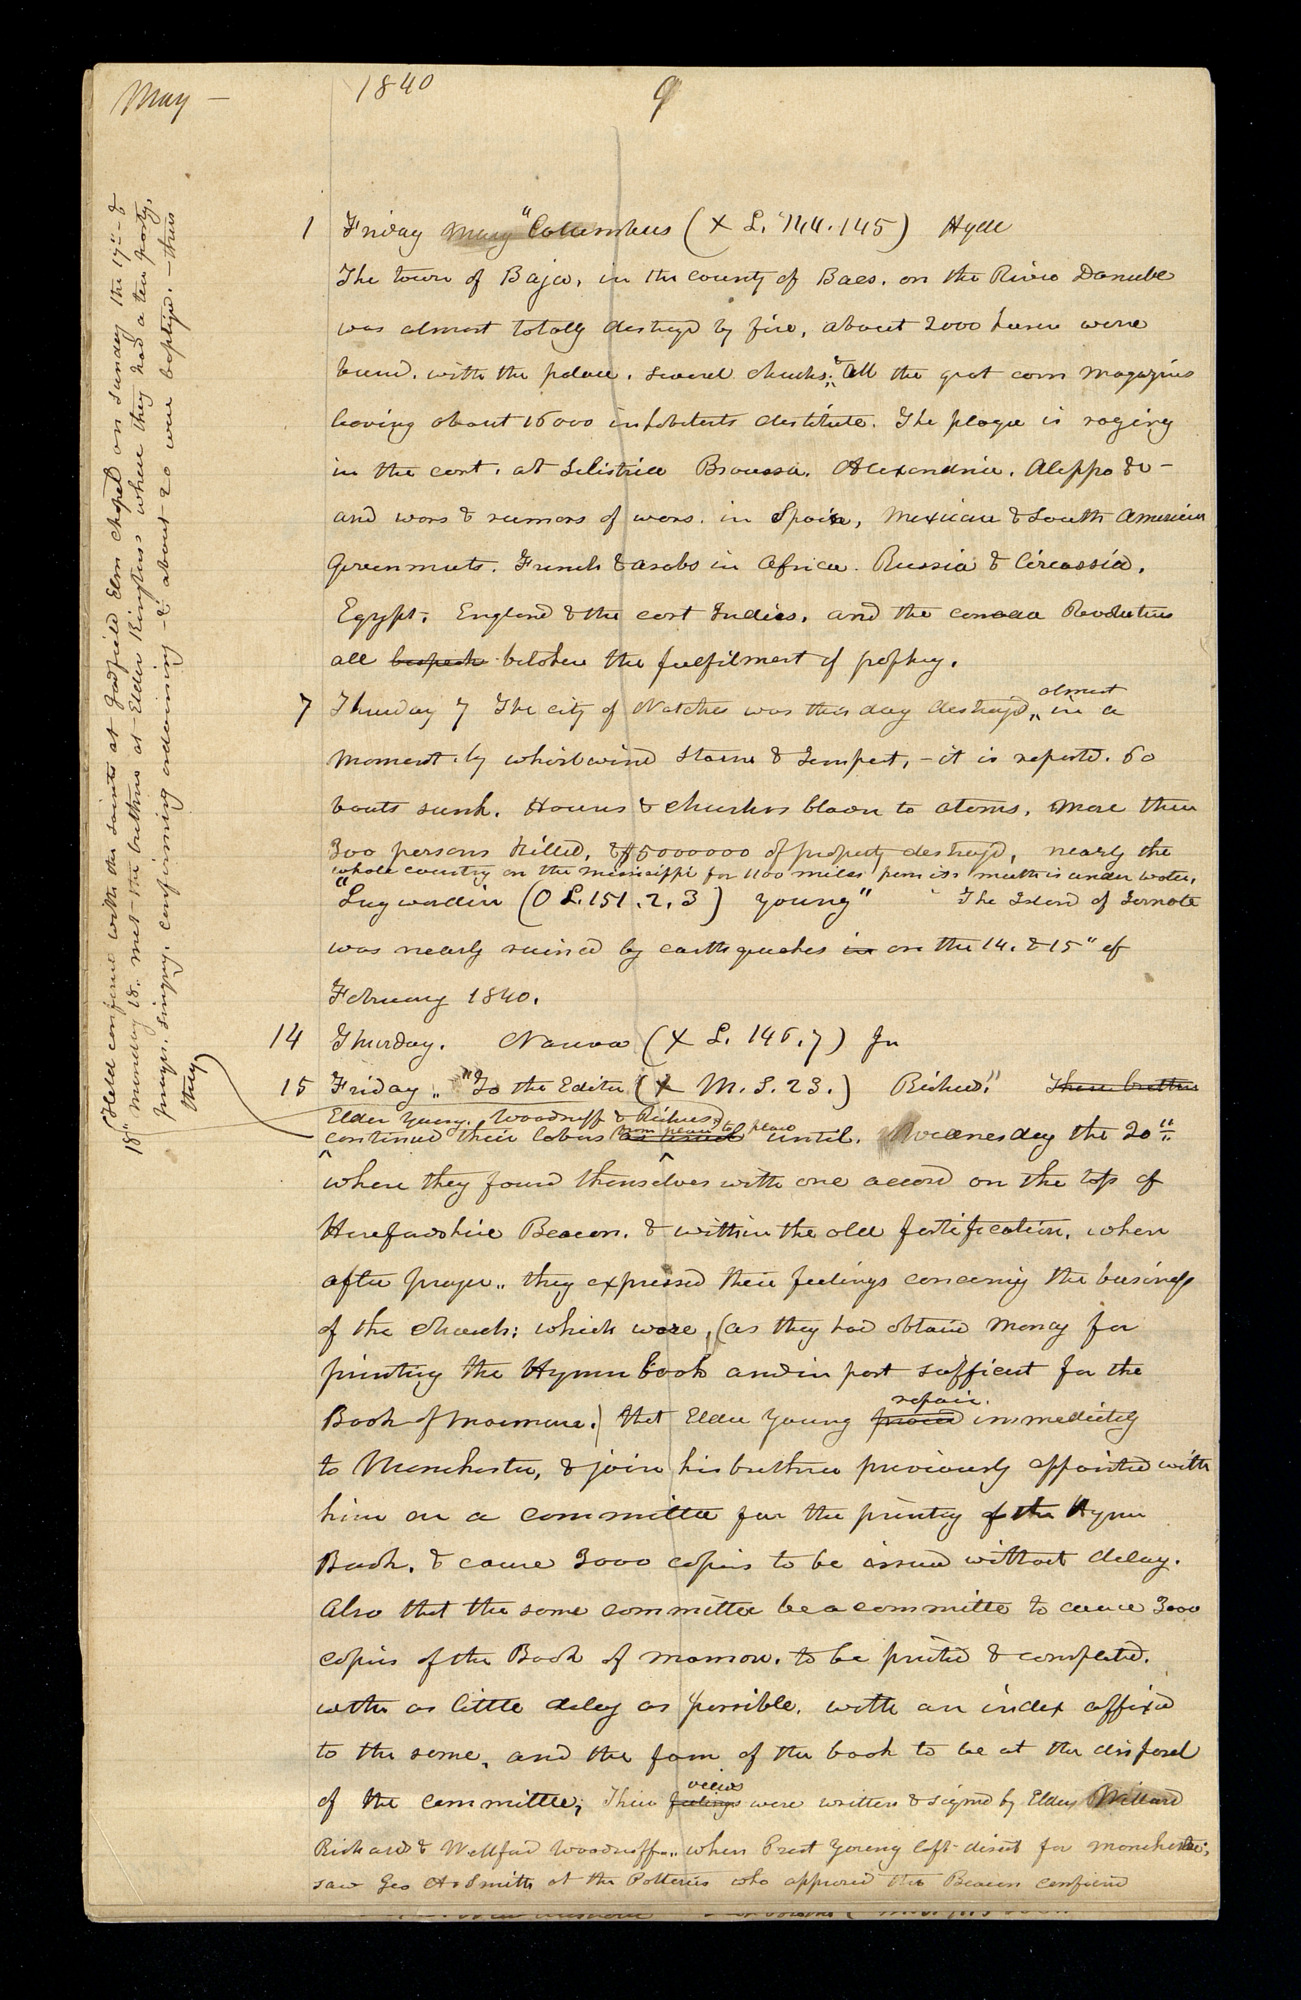 May –
1840
9
1 Friday May "Columbus (X L. 144.145) Hyde
The town of Baja, in the county of Baes. on the River Danube
was almost totally destroyd by fire, about 2000 houses were
burnd. with the palace. several churchs; & All the great corn magazines
leaving about 16000 inhabitents destitute. The plague is raging
in the east. at Silistria Broussa. Alexandria. Aleppo &c –
and wars & rumors of wars. in Spain, Mexican & South American
Governments. French & arabs in Africa. Russia & Circassia.
Egypt. England & the east Indies. and the canada Revolutions
all bespeak betoken the fulfilment of prophecy.
7 Thursday 7 The city of Natches was this day destroyd, almost in a
moment by whirlwind storm & Tempest, – it is reported. 60
boats sunk. Houses & churches blown to atoms. more than
300 persons killed, & $5000000 of property destroyd, nearly the
whole country on the mississippi for 1100 miles from its mouth is under water,
"Lugwardin (O L. 151.2.3) young" The Island of Ternate
was nearly ruined by earthquakes in on the 14. & 15" of
February 1840.
14 Thursday. Nauvoo (X L. 146.7) Jn
15 Friday.. "To the Editor (X M.S. 23.) Richds." These brethren
Elder Young. Woodruff & Richards
continued their labors as usual from place to place until. Wednesday the 20th
where they found themselves with one accord on the top of
Herefordshire Beacon. & within the old fortification. when
after prayer.. they expressed their feelings concerning the business
of the church; which were, (as they had obtaind money for
printing the Hymn book and in part sufficient for the
Book of mormon.) that Elder Young proceed repair. immediately
to Manchester, & join his brethren previously appointed with
him on a committee for the printing of the Hymn
Book. & cause 3000 copies to be issued without delay.
Also that the same committee be a committee to cause 3000
copies of the Book of mormon. to be printed & completed.
with as little delay as possible. with an index affixed
to the same, and the form of the book to be at the disposal
of the committee; Their feelings views were written & signed by Elders Willard
Richards & Willford Woodruff.. when Prest Young left direct for manchester;
saw Geo A. Smith at the Potteries who approved the Beacon conference
Held conference with the saints at Gadfield Elm chapel on sunday the 17th &
18th monday 18. met the brethren at Elder Kingtons where they had a tea party,
prayer. singing. confirming ordaining – & about 20 were baptized. – thus
they